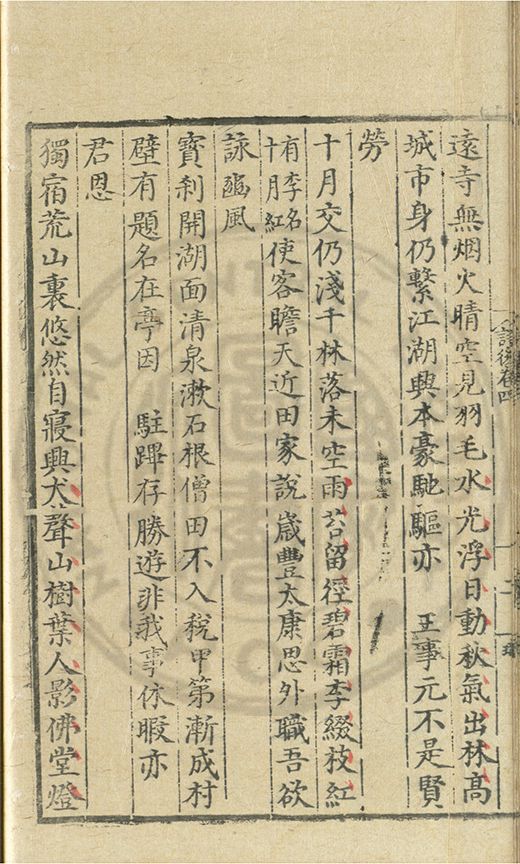 遠寺無烟火晴空見羽毛水光浮日動秋氣出林高
城市身仍繫江湖興本豪馳驅亦　王事元不是賢
勞
十月交仍淺千林落未空雨苔留徑碧霜李綴枝紅
有李名十月紅使客瞻天近田家說歲豐太康思外職吾欲
詠豳風
寶刹開湖面清泉漱石根僧田不入稅甲第漸成村
壁有題名在亭因　駐蹕存勝遊非我事休暇亦
君恩
獨宿荒山裏悠然自寢興犬聲山樹葉人影佛堂燈